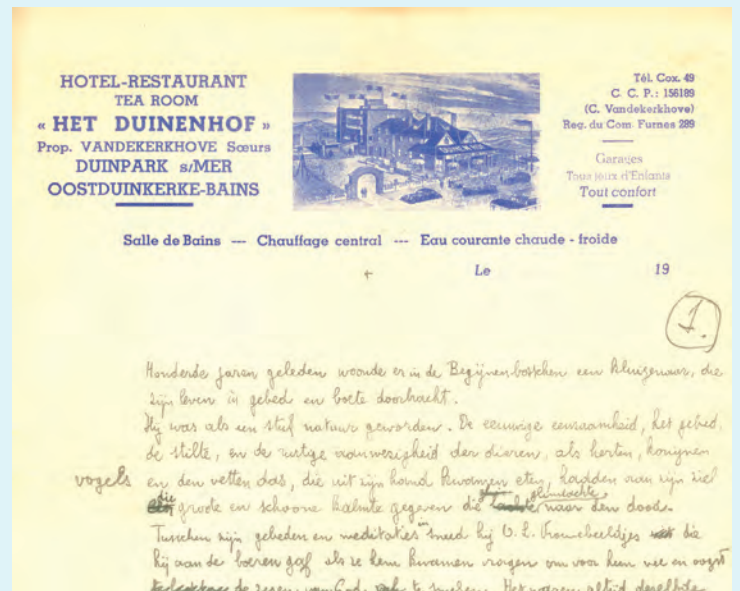 HOTEL-RESTAURANT
TEA ROOM
« HET DUINENHOF »
Prop. VANDEKERKHOVE Sœurs
DUINPARK s/MER
OOSTDUINKERKE-BAINS
Tél. Cox. 49
C. C. P.: 156189
(C. Vandekerkhove)
Reg. du Com. Furnes 289
Garages
Tous jeux d'Enfants
Tout confort
Salle de Bains --- Chauffage central --- Eau courante chaude - froide
Le 19
1.
Honderde jaren geleden woonde er in de Begijnenbosschen een kluizenaar, die
zijn leven in gebed en boete doorbracht.
Hij was als een stuk natuur geworden. De eeuwige eenzaamheid, het gebed,
de stilte, en de rustige aanwezigheid der dieren, als herten, konijnen
vogels en den vetten das, die uit zijn hand kwamen eten, hadden aan zijn ziel
die groote en schoone kalmte gegeven die glimlachte naar den dood.
Tusschen zijn gebeden en meditaties in sneed hij O. L. Vrouwebeeldjes die
hij aan de boeren gaf als ze hem kwamen vragen om voor hun vee en oogst
de zegen van God te smeeken. Het waren altijd dezelfde